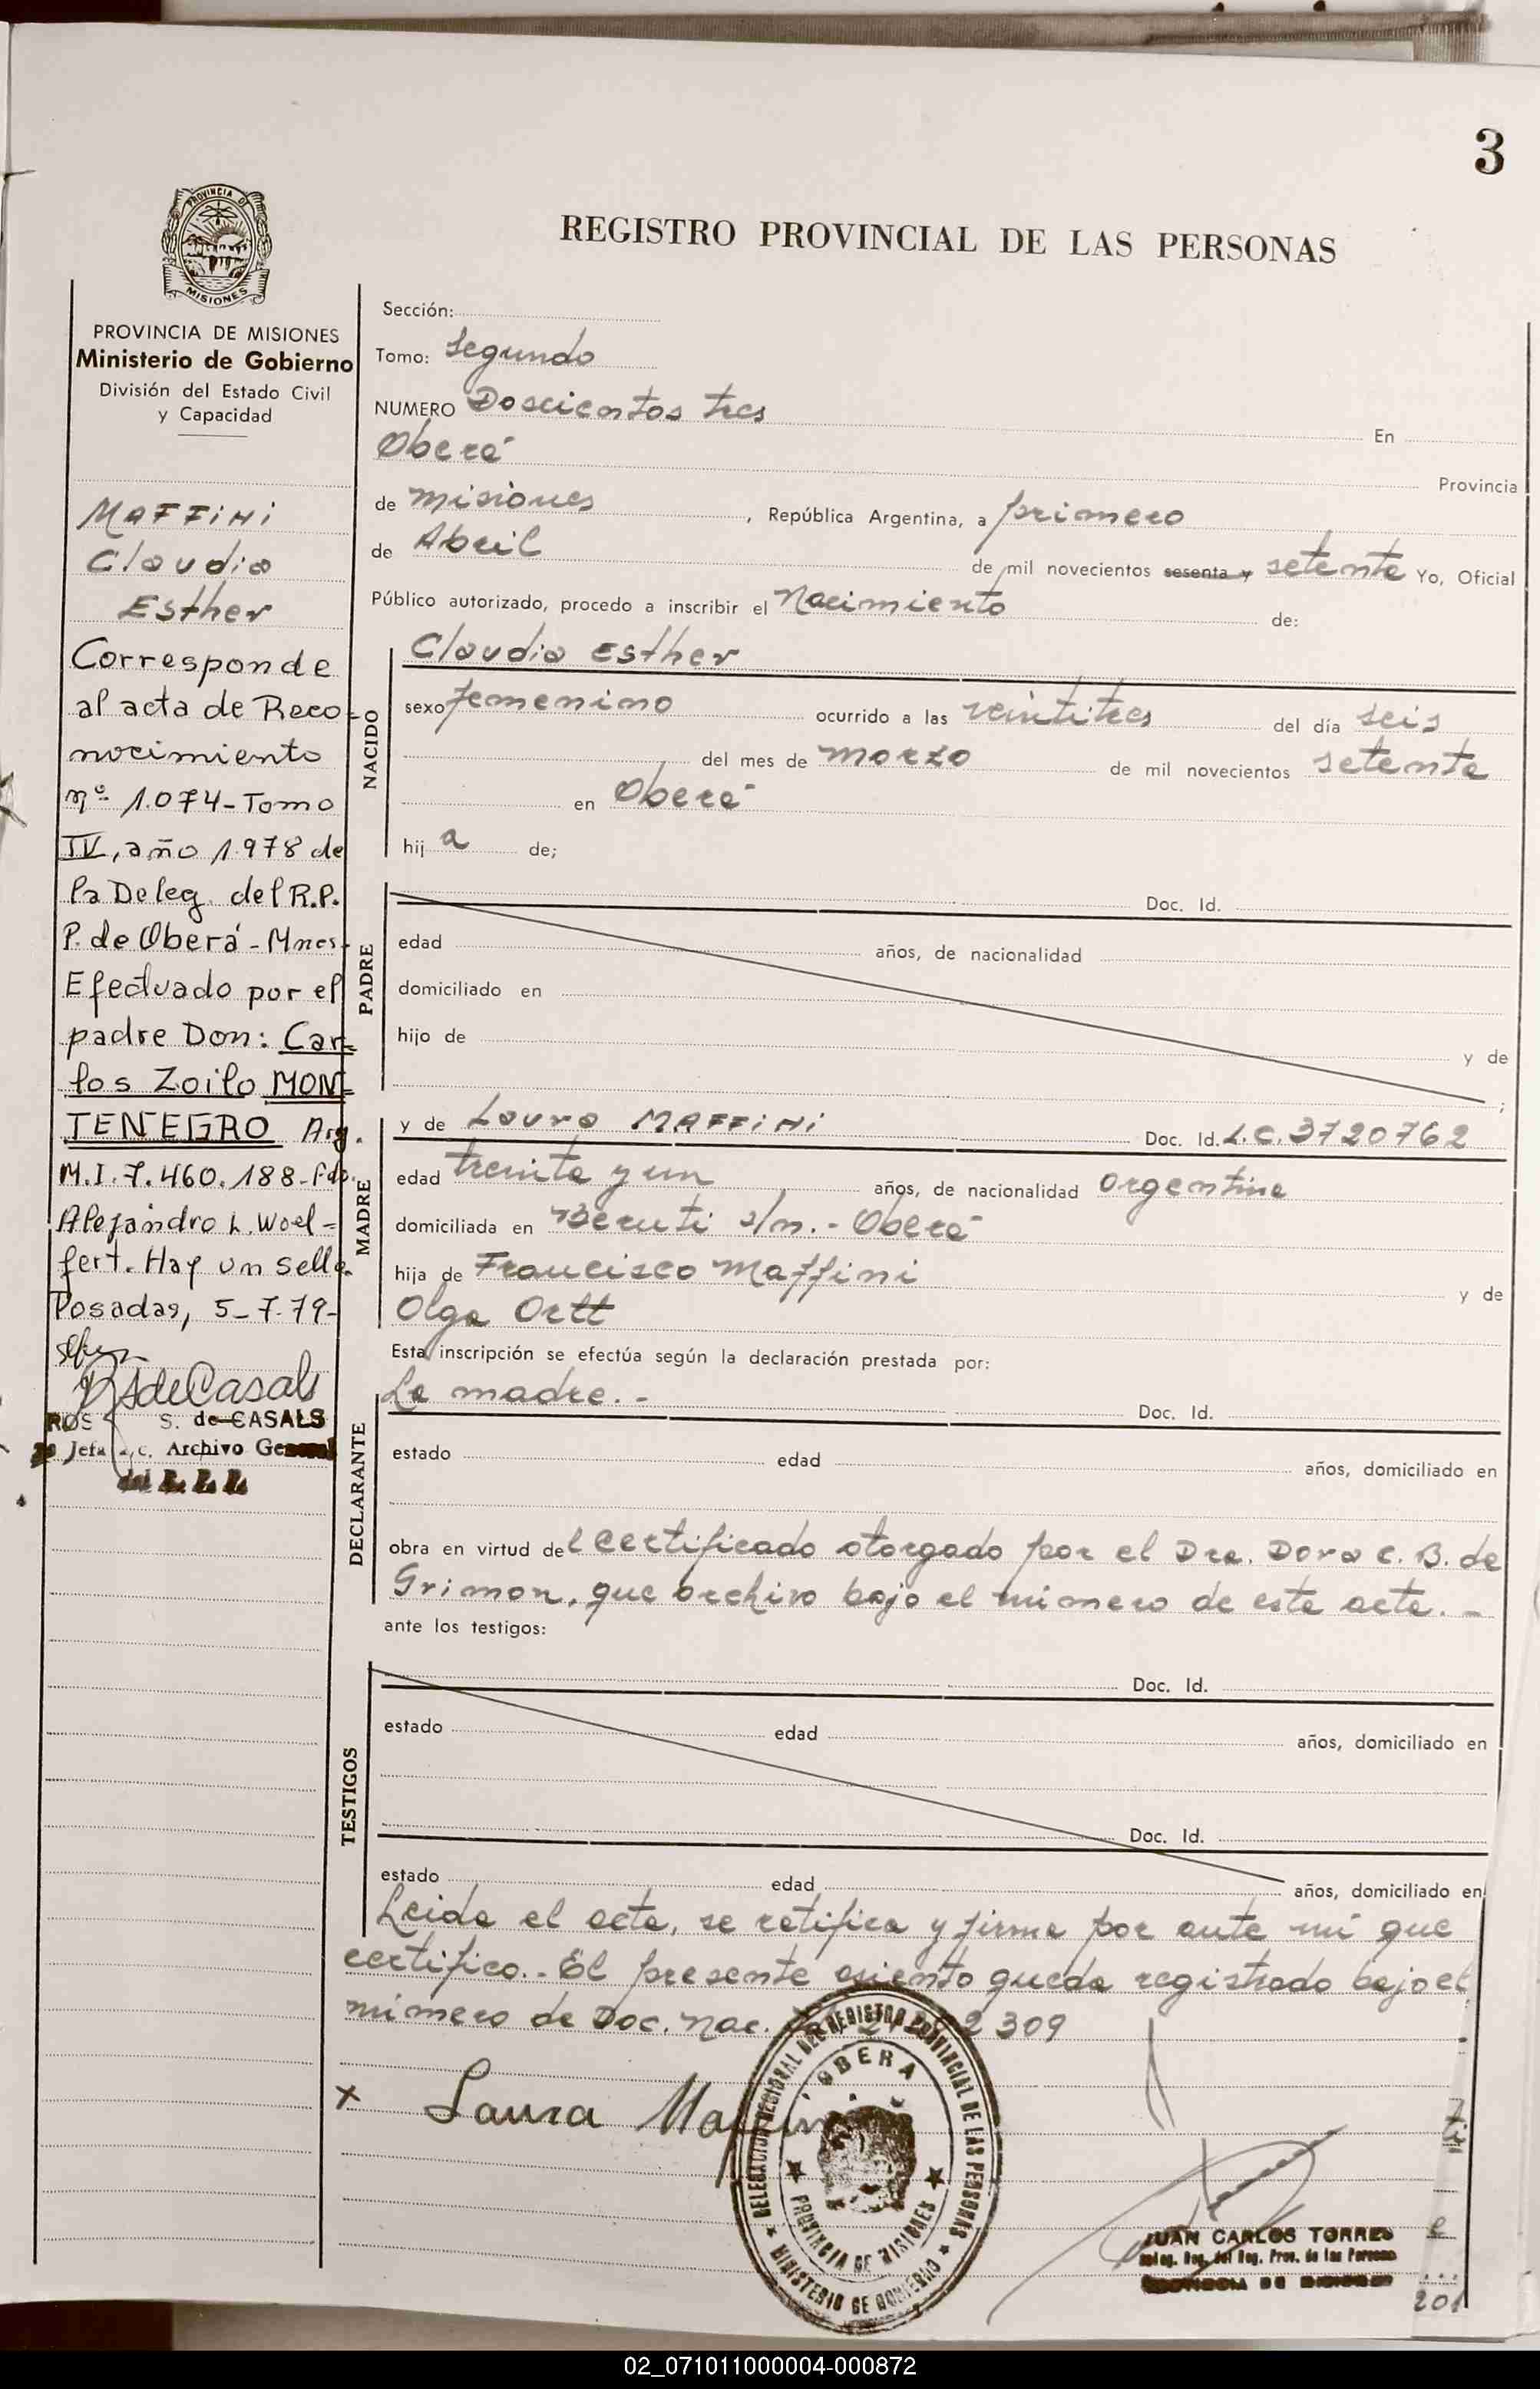 3
PROVINCIA DE
MISIONES
REGISTRO PROVINCIAL DE LAS PERSONAS
PROVINCIA DE MISIONES
Ministerio de Gobierno
División del Estado Civil
y Capacidad
MAFFINI
Claudia
Esther
Corresponde
al acta de Reco-
nocimiento
nº 1.074-Tomo
IV, año 1.978 de
la Deleg. del R.P.
P. de Oberá-Mnes-
Efectuado por el
padre Don: Car-
los Zoilo MON-
TENEGRO Arg.
M.I. 7.460.188-Fdo.
Alejandro L. Woel-
fert. Hay un sello.
Posadas, 5-7-79-
RSdeCasals
S. de CASALS
Jefa Archivo General
Sección:
Tomo: Segundo
NUMERO Doscientos tres En
Oberá Provincia
de misiones, República Argentina, a primero
de Abril de mil novecientos sesenta y setenta Yo, Oficial
Público autorizado, procedo a inscribir el Nacimiento de:
NACIDO
Claudia Esther
sexo femenino ocurrido a las veintitres del día seis
del mes de marzo de mil novecientos setenta
en Oberá
hij a de;
PADRE
Doc. Id.
edad años, de nacionalidad
domiciliado en
hijo de y de
;
MADRE
y de Laura MAFFINI Doc. Id. L.C. 3720762
edad treinta y un años, de nacionalidad argentina
domiciliada en Beruti s/n.- Oberá
hija de Francisco Maffini y de
Olga Ortt
Esta inscripción se efectúa según la declaración prestada por:
DECLARANTE
La madre.- Doc. Id.
estado edad años, domiciliado en
obra en virtud del certificado otorgado por el Dra. Dora C. B. de
Grimon, que archivo bajo el número de este acta.-
ante los testigos:
TESTIGOS
Doc. Id.
estado edad años, domiciliado en
Doc. Id.
estado edad años, domiciliado en
Leida el acta, se ratifica y firma por ante mí que
certifico.- El presente asiento queda registrado bajo el
número de Doc. Nac. 2309
x Laura Maffini
DELEGACION REGIONAL DEL REGISTRO PROVINCIAL DE LAS PERSONAS
OBERA
PROVINCIA DE MISIONES
MINISTERIO DE GOBIERNO
JUAN CARLOS TORRES
Deleg. Reg. del Reg. Prov. de las Personas
PROVINCIA DE MISIONES
201
02_071011000004-000872